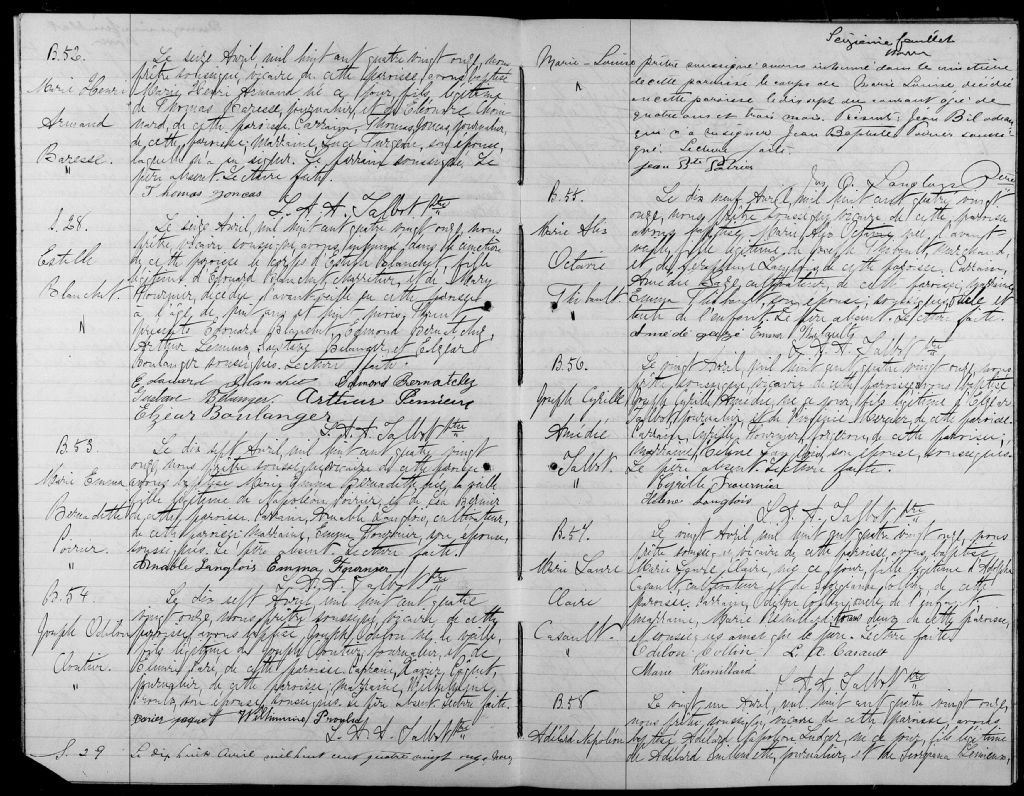 B. 52.
Marie Henri
Armand
Baresse.
"
Le seize Avril mil huit cent quatre vingt onze, nous
prêtre soussigné, vicaire de cette paroisse avons baptisé
Marie Henri Armand né ce jour, fils légitime
de Thomas Baresse, journalier, et de
de cette paroisse. Parrain, Thomas Joncas, journalier,
de cette paroisse, Marraine, Luce Turgeon, son épouse,
laquelle n'a su signer. Le parrain soussigné. Le
père absent. Lecture faite.
Thomas Joncas
L. A. A. Talbot Ptre
S. 28
Estelle
Blanchet.
"
Le seize Avril, mil huit cent quatre vingt onze, nous
prêtre vicaire soussigné avons inhumé dans le cimetière
de cette paroisse le corps d'Estelle Blanchet, fille
légitime d'Edouard Blanchet, charretier, et de Mary
Fournier, décédée l'avant veille en cette paroisse
à l'âge de huit ans et huit mois. Etaient
présents Edouard Blanchet, Edmond Bernatchez,
Arthur Lemieux, Gustave Bélanger, et Elzéar
Boulanger soussignés. Lecture faite.
Edouard Blanchet Edmond Bernatchez
Gustave Bélanger Arthur Lemieux
Elzear Boulanger
L. A. A. Talbot Ptre
B. 53
Marie Emma
Bernadette
Poirier.
"
Le dix sept Avril, mil huit cent quatre vingt
onze, nous prêtre soussigné, vicaire de cette paroisse
avons baptisé Marie Emma Bernadette née la veille
fille légitime de Napoléon Poirier, et de Léa Bernier
de cette paroisse. Parrain, Amable Langlois, cultivateur,
de cette paroisse, marraine, Emma Fournier, son épouse,
soussignés. Le père absent. Lecture faite.
Amable Langlois Emma Fournier
L. A. A. Talbot Ptre
B. 54.
Joseph Odilon
Cloutier.
"
Le dix sept Avril, mil huit cent quatre
vingt onze, nous prêtre soussigné, vicaire de cette
paroisse avons baptisé Joseph Odilon né la veille,
fils légitime de Joseph Cloutier, journalier, et de
Paré, de cette paroisse. Parrain, Xavier Paquet,
journalier, de cette paroisse, marraine, Wilhelmine
Proulx, son épouse soussignés. Le père absent. Lecture faite.
xavier paquet Wilhelmine Proulx
L. A. A. Talbot Ptre
S. 29
Le dix huit Avril mil huit cent quatre vingt onze nous
Seizième feuillet
Marie-Louise
"
prêtre soussigné avons inhumé dans le cimetière
de cette paroisse le corps de Marie Louise décédée
en cette paroisse le dix sept du courant agé de
quatre ans et trois mois. Présent: Jean Bilodeau
qui n'a su signer Jean Baptiste Poirier soussi-
gné. Lecture faite.
jean Bte Poirier
Jos. O. Langlois Ptre
B. 55.
Marie Alis
Octavie
Thibault.
"
Le dix neuf Avril, mil huit cent quatre vingt
onze, nous prêtre soussigné, vicaire de cette paroisse
avons baptisé Marie Octavie née l'avant
veille, fille légitime de Joseph Thibault, marchand,
et de Langlois, de cette paroisse. Parrain,
Amédée cultivateur, de cette paroisse, marraine,
Emma Thibault, son épouse, soussignés, oncle et
tante de l'enfant. Le père absent. Lecture faite.
Emma Thibault
L. A. A. Talbot Ptre
B. 56.
Joseph Cyrille
Amédié
Talbot.
"
Le vingt Avril, mil huit cent quatre vingt onze, nous
prêtre soussigné vicaire de cette paroisse avons baptisé
Joseph Cyrille Amédié, né ce jour, fils légitime d'Elzéar
Talbot, journalier, et de Mercier, de cette paroisse.
Parrain, Cyrille Fournier, forgeron, de cette paroisse,
marraine, Hélène Langlois, son épouse, soussignés.
Le père absent. Lecture faite.
Cyrille Fournier
Hélène Langlois
L. A. A. Talbot Ptre
B. 57.
Marie Laure
Claire
Casault.
"
Le vingt Avril, mil huit cent quatre vingt onze, nous
prêtre soussigné, vicaire de cette paroisse avons baptisé
Marie Laure Claire, née ce jour, fille légitime d'Adolphe
Casault, cultivateur, et de de cette
paroisse. Parrain, Odilon Collin, oncle de l'enfant,
marraine, Marie Rémillard, tous deux de cette paroisse,
et soussignés ainsi que le père. Lecture faite.
Odilon Collin L. A. Casault
Marie Rémillard
L. A. A. Talbot Ptre
B. 58
Adélard Napoléon
Le vingt un Avril, mil huit cent quatre vingt onze,
nous prêtre soussigné, vicaire de cette paroisse, avons
baptisé Adélard Napoléon né ce jour, fils légitime
de Adélard Guillemette, journalier, et de Lemieux,